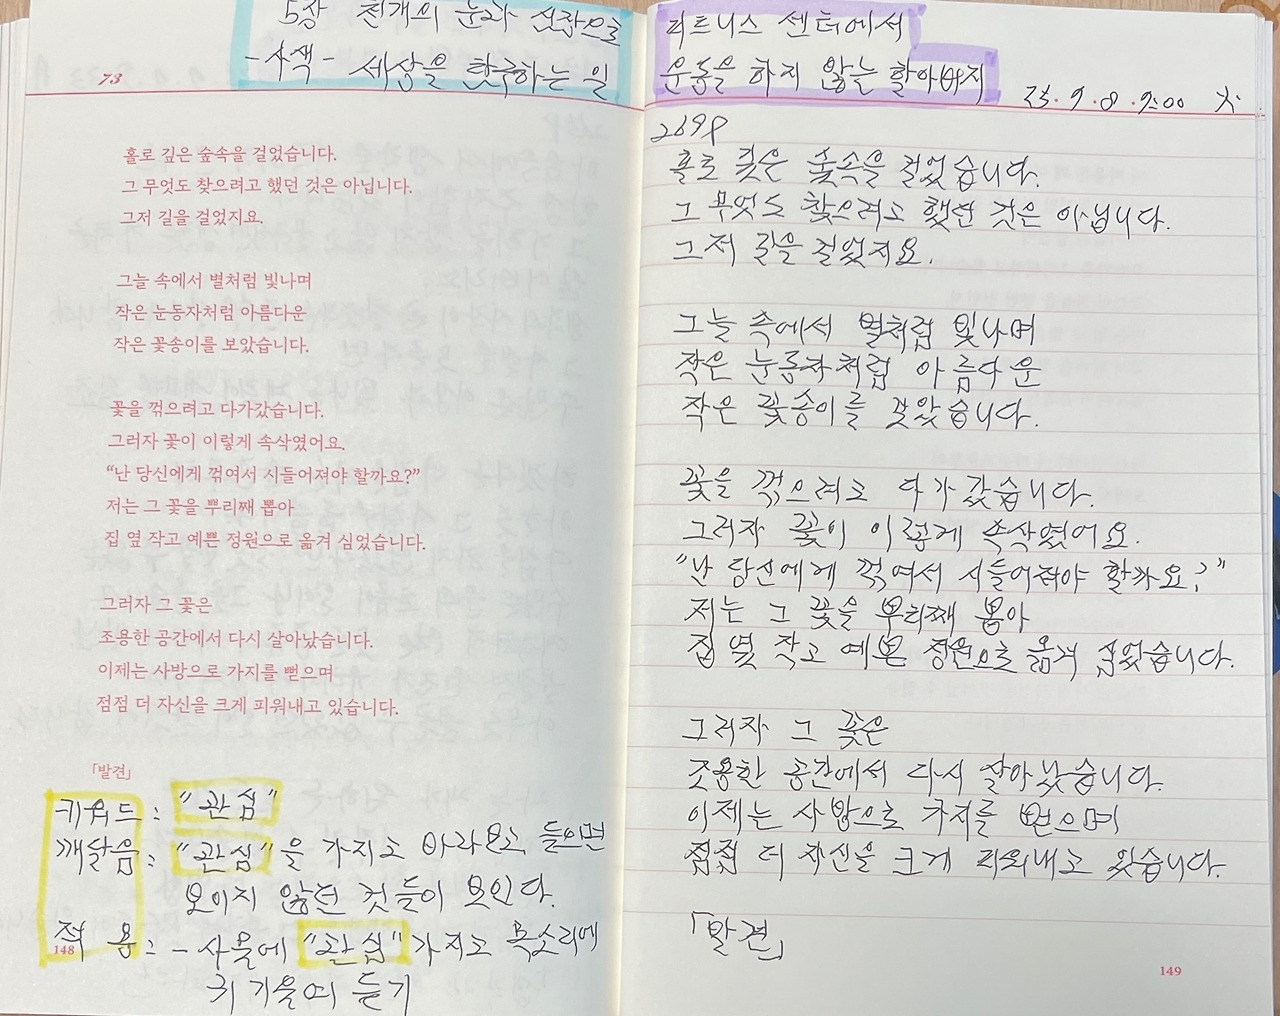 5장 천개의 눈과 심장으로
-사색- 세상을 탐구하는 일
73
홀로 깊은 숲속을 걸었습니다.
그 무엇도 찾으려고 했던 것은 아닙니다.
그저 길을 걸었지요.
그늘 속에서 별처럼 빛나며
작은 눈동자처럼 아름다운
작은 꽃송이를 보았습니다.
꽃을 꺾으려고 다가갔습니다.
그러자 꽃이 이렇게 속삭였어요.
“난 당신에게 꺾여서 시들어져야 할까요?”
저는 그 꽃을 뿌리째 뽑아
집 옆 작고 예쁜 정원으로 옮겨 심었습니다.
그러자 그 꽃은
조용한 공간에서 다시 살아났습니다.
이제는 사방으로 가지를 뻗으며
점점 더 자신을 크게 피워내고 있습니다.
「발견」
키워드 : "관심"
깨달음 : "관심"을 가지고 바라보고 들으면
보이지 않던 것들이 보인다.
적 용 : - 사물에 "관심" 가지고 목소리에
귀 기울여 듣기
148
피트니스 센터에서
운동을 하지 않는 할아버지
25. 9. 8. 9:00
269P
홀로 깊은 숲속을 걸었습니다.
그 무엇도 찾으려고 했던 것은 아닙니다.
그저 길을 걸었지요.
그늘 속에서 별처럼 빛나며
작은 눈동자처럼 아름다운
작은 꽃송이를 보았습니다.
꽃을 꺾으려고 다가갔습니다.
그러자 꽃이 이렇게 속삭였어요.
"난 당신에게 꺾여서 시들어져야 할까요?"
저는 그 꽃을 뿌리째 뽑아
집 옆 작고 예쁜 정원으로 옮겨 심었습니다.
그러자 그 꽃은
조용한 공간에서 다시 살아났습니다.
이제는 사방으로 가지를 뻗으며
점점 더 자신을 크게 피워내고 있습니다.
「발견」
149